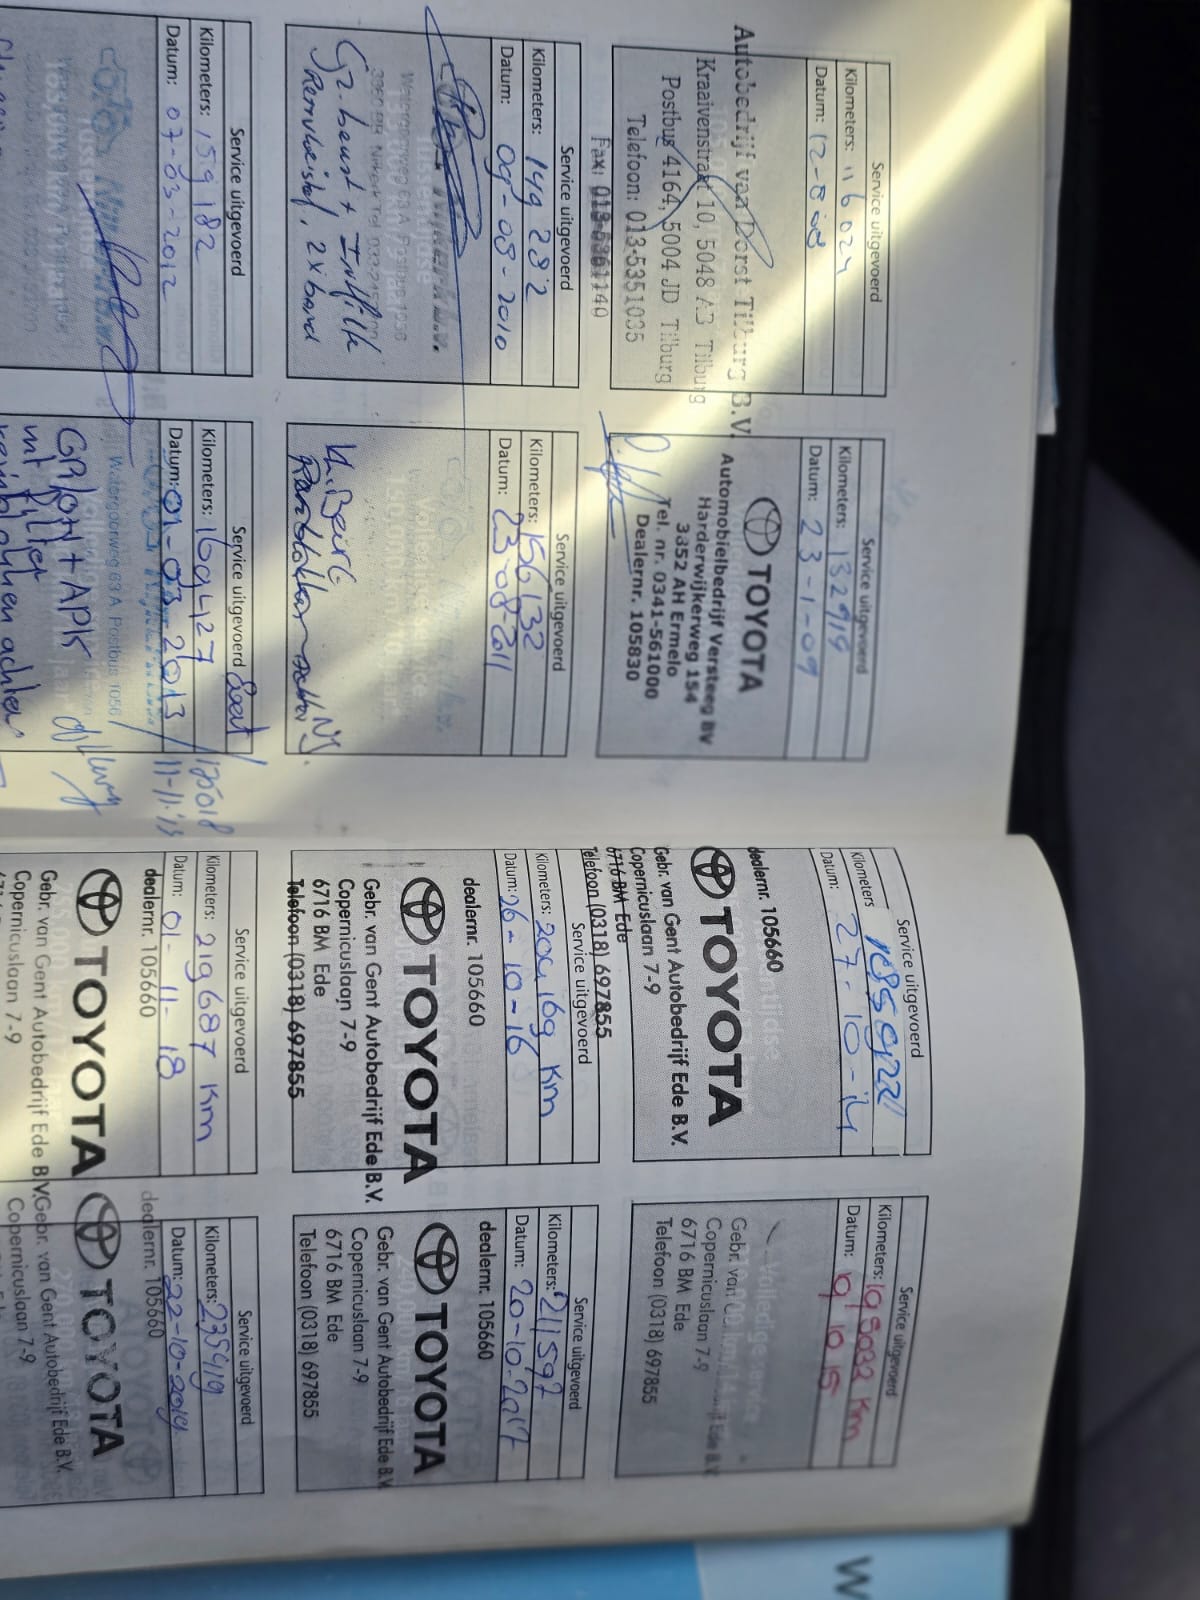 Service uitgevoerd
Kilometers: 116 024
Datum: 12-8-08
Autobedrijf van Dorst Tilburg B.V.
Kraaivenstraat 10, 5048 AB Tilburg
Postbus 4164, 5004 JD Tilburg
Telefoon: 013-5351035
Fax: 013-5361140
Service uitgevoerd
Kilometers: 132919
Datum: 23-1-09
TOYOTA
Automobielbedrijf Versteeg BV
Harderwijkerweg 154
3352 AH Ermelo
Tel. nr. 0341-561000
Dealernr. 105830
Service uitgevoerd
Kilometers: 149 282
Datum: 09-08-2010
G2 beurt +
Remvloeistof, 2x band
Service uitgevoerd
Kilometers: 156132
Datum: 23-08-2011
Kl. Beurt
Service uitgevoerd
Kilometers: 159 182
Datum: 07-03-2012
Service uitgevoerd
Kilometers: 169427
Datum: 01-03-2013
175018
11-11-'13
+ APK
Watergoorweg 63 A Postbus 1056
Service uitgevoerd
Kilometers
Datum: 27-10-14
dealernr. 105660
TOYOTA
Gebr. van Gent Autobedrijf Ede B.V.
Copernicuslaan 7-9
6716 BM Ede
Telefoon (0318) 697855
Service uitgevoerd
Kilometers: 195032 km
Datum: 19 10 15
Gebr. van
Copernicuslaan 7-9
6716 BM Ede
Telefoon (0318) 697855
Service uitgevoerd
Kilometers: 204169 km
Datum: 26-10-16
dealernr. 105660
TOYOTA
Gebr. van Gent Autobedrijf Ede B.V.
Copernicuslaan 7-9
6716 BM Ede
Telefoon (0318) 697855
Service uitgevoerd
Kilometers: 211597
Datum: 20-10-2017
dealernr. 105660
TOYOTA
Gebr. van Gent Autobedrijf Ede B.V.
Copernicuslaan 7-9
6716 BM Ede
Telefoon (0318) 697855
Service uitgevoerd
Kilometers: 219687 km
Datum: 01-11-18
dealernr. 105660
TOYOTA
Gebr. van Gent Autobedrijf Ede B.V.
Copernicuslaan 7-9
Service uitgevoerd
Kilometers: 235419
Datum: 22-10-2019
dealernr. 105660
TOYOTA
Gebr. van Gent Autobedrijf Ede B.V.
Copernicuslaan 7-9
W